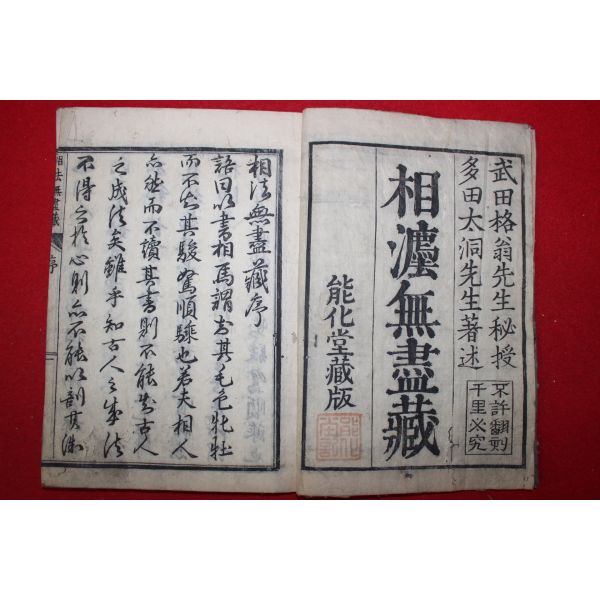 武田格翁先生秘授
多田太洞先生著述
不許翻刻
千里必究
相灋無盡藏
能化堂藏版
相法無盡藏序
語曰以書相馬謂知其毛色牝牡
而不知其駿駑順騄也若夫相人
亦然而不讀其書則不能知古人
之成法矣雖乎知古人之成法
不得之於心則亦不能以
相法無盡藏
序